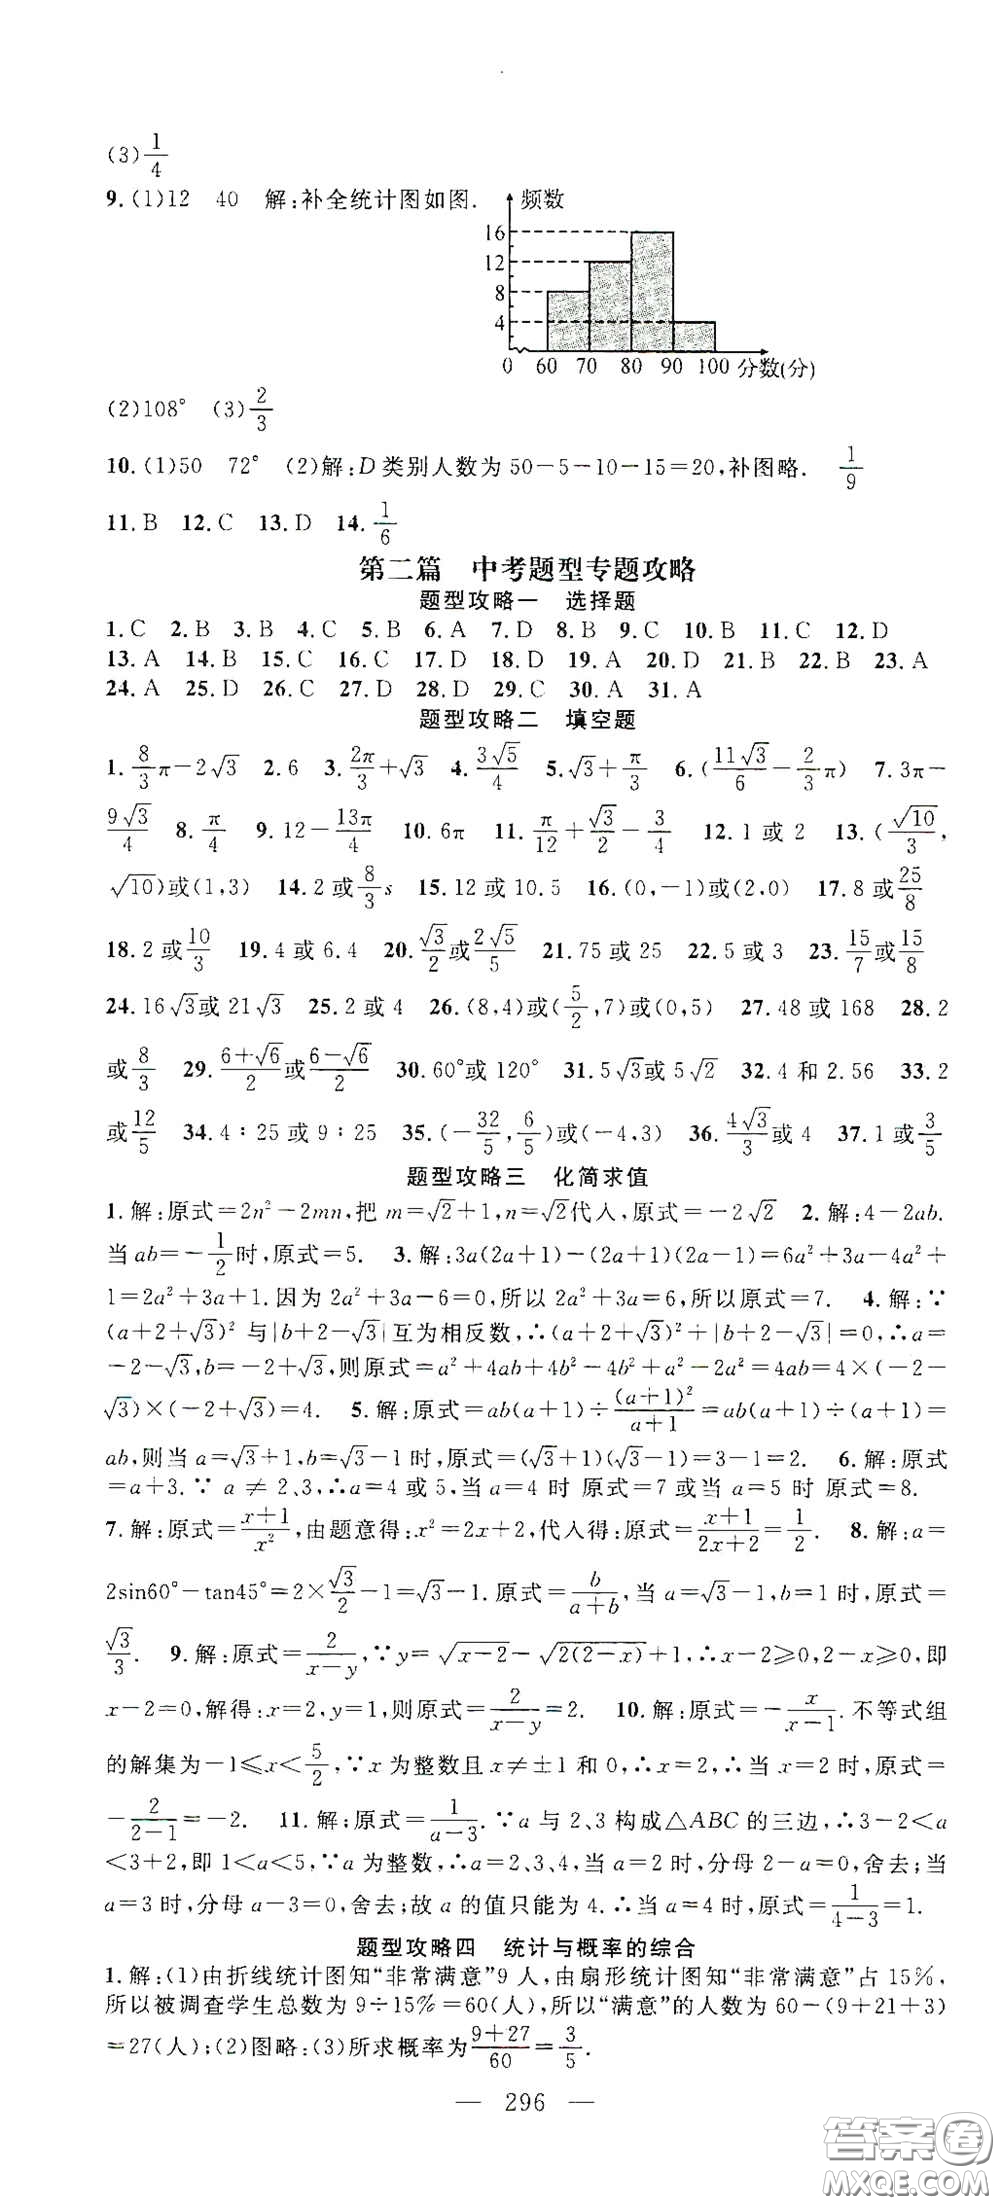 (3)1/4
9.(1)12 40 解:补全统计图如图.
频数
16
12
8
4
0 60 70 80 90 100 分数(分)
(2)108° (3)2/3
10.(1)50 72° (2)解:D类别人数为50-5-10-15=20,补图略. 1/9
11.B 12.C 13.D 14.1/6
第二篇 中考题型专题攻略
题型攻略一 选择题
1.C 2.B 3.B 4.C 5.B 6.A 7.D 8.B 9.C 10.B 11.C 12.D
13.A 14.B 15.C 16.C 17.D 18.D 19.A 20.D 21.B 22.B 23.A
24.A 25.D 26.C 27.D 28.D 29.C 30.A 31.A
题型攻略二 填空题
1.8/3π-2√3 2.6 3.2π/3+√3 4.3√5/4 5.√3+π/3 6.(11√3/6-2/3π) 7.3π-
9√3/4 8.π/4 9.12-13π/4 10.6π 11.π/12+√3/2-3/4 12.1或2 13.(√10/3,
√10)或(1,3) 14.2或8/3s 15.12或10.5 16.(0,-1)或(2,0) 17.8或25/8
18.2或10/3 19.4或6.4 20.√3/2或2√5/5 21.75或25 22.5或3 23.15/7或15/8
24.16√3或21√3 25.2或4 26.(8,4)或(5/2,7)或(0,5) 27.48或168 28.2
或8/3 29.(6+√6)/2或(6-√6)/2 30.60°或120° 31.5√3或5√2 32.4和2.56 33.2
或12/5 34.4:25或9:25 35.(-32/5,6/5)或(-4,3) 36.4√3/3或4 37.1或3/5
题型攻略三 化简求值
1.解:原式=2n²-2mn,把m=√2+1,n=√2代入,原式=-2√2 2.解:4-2ab.
当ab=-1/2时,原式=5. 3.解:3a(2a+1)-(2a+1)(2a-1)=6a²+3a-4a²+
1=2a²+3a+1.因为2a²+3a-6=0,所以2a²+3a=6,所以原式=7. 4.解:∵
(a+2+√3)²与|b+2-√3|互为相反数,∴(a+2+√3)²+|b+2-√3|=0,∴a=
-2-√3,b=-2+√3,则原式=a²+4ab+4b²-4b²+a²-2a²=4ab=4×(-2-
√3)×(-2+√3)=4. 5.解:原式=ab(a+1)÷(a+1)²/(a+1)=ab(a+1)÷(a+1)=
ab,则当a=√3+1,b=√3-1时,原式=(√3+1)(√3-1)=3-1=2. 6.解:原式
=a+3.∵a≠2、3,∴a=4或5,当a=4时 原式=7或当a=5时 原式=8.
7.解:原式=(x+1)/x²,由题意得:x²=2x+2,代入得:原式=(x+1)/(2x+2)=1/2. 8.解:a=
2sin60°-tan45°=2×√3/2-1=√3-1.原式=b/(a+b),当a=√3-1,b=1时,原式=
√3/3. 9.解:原式=2/(x-y),∵y=√(x-2)-√(2(2-x))+1,∴x-2≥0,2-x≥0,即
x-2=0,解得:x=2,y=1,则原式=2/(x-y)=2. 10.解:原式=-x/(x-1).不等式组
的解集为-1≤x<5/2,∵x为整数且x≠±1和0,∴x=2,∴当x=2时,原式=
-2/(2-1)=-2. 11.解:原式=1/(a-3).∵a与2、3构成△ABC的三边,∴3-2<a
<3+2,即1<a<5,∵a为整数,∴a=2、3、4,当a=2时,分母2-a=0,舍去;当
a=3时,分母a-3=0,舍去;故a的值只能为4.∴当a=4时,原式=1/(4-3)=1.
题型攻略四 统计与概率的综合
1.解:(1)由折线统计图知“非常满意”9人,由扇形统计图知“非常满意”占15%,
所以被调查学生总数为9÷15%=60(人),所以“满意”的人数为60-(9+21+3)
=27(人);(2)图略:(3)所求概率为(9+27)/60=3/5.
— 296 —
答案卷
MXQE.COM